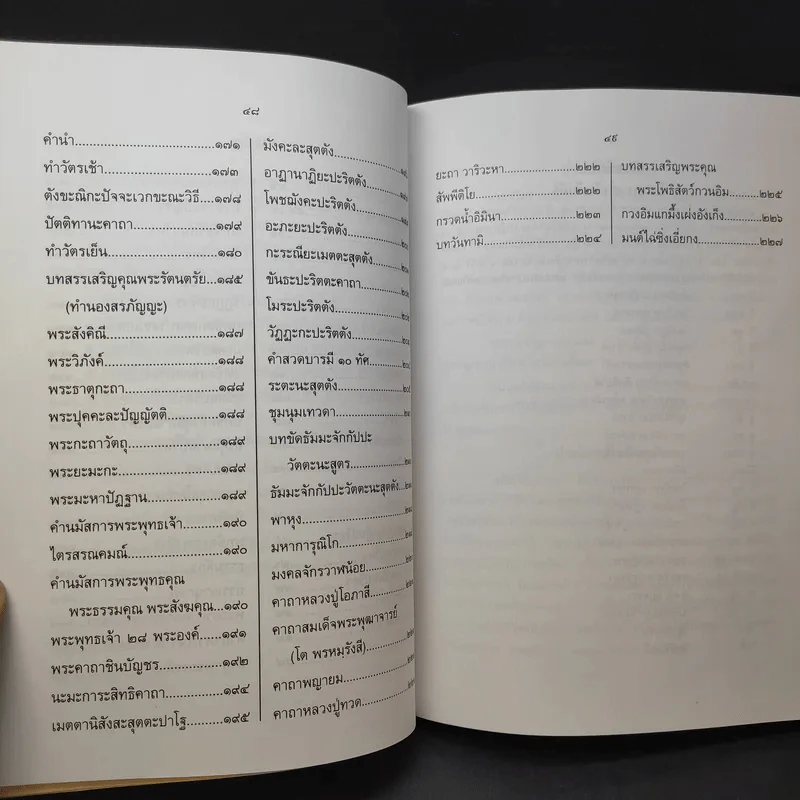 ๔๘
คำนำ.....๑๗๑
ทำวัตรเช้า.....๑๗๓
ตังขะณิกะปัจจะเวกขะณะวิธี.....๑๗๘
ปัตติทานะคาถา.....๑๗๙
ทำวัตรเย็น.....๑๘๐
บทสรรเสริญคุณพระรัตนตรัย.....๑๘๕
(ทำนองสรภัญญะ)
พระสังคิณี.....๑๘๗
พระวิภังค์.....๑๘๘
พระธาตุกะถา.....๑๘๘
พระปุคคะละปัญญัตติ.....๑๘๘
พระกะถาวัตถุ.....๑๘๙
พระยะมะกะ.....๑๘๙
พระมะหาปัฏฐาน.....๑๘๙
คำนมัสการพระพุทธเจ้า.....๑๙๐
ไตรสรณคมณ์.....๑๙๐
คำนมัสการพระพุทธคุณ
พระธรรมคุณ พระสังฆคุณ.....๑๙๐
พระพุทธเจ้า ๒๘ พระองค์.....๑๙๑
พระคาถาชินบัญชร.....๑๙๒
นะมะการะสิทธิคาถา.....๑๙๔
เมตตานิสังสะสุตตะปาโฐ.....๑๙๕
มังคะละสุตตัง.....
อาฏานาฏิยะปะริตตัง.....
โพชฌังคะปะริตตัง.....
อะภะยะปะริตตัง.....
กะระณียะเมตตะสุตตัง.....
ขันธะปะริตตะคาถา.....
โมระปะริตตัง.....
วัฏฏะกะปะริตตัง.....
คำสวดบารมี ๑๐ ทัศ.....
ระตะนะสุตตัง.....
ชุมนุมเทวดา.....
บทขัดธัมมะจักกัปปะ
วัตตะนะสูตร.....
ธัมมะจักกัปปะวัตตะนะสุตตัง.....
พาหุง.....
มหาการุณิโก.....
มงคลจักรวาฬน้อย.....
คาถาหลวงปู่โอภาสี.....
คาถาสมเด็จพระพุฒาจารย์
(โต พรหมฺรังสี).....
คาถาพญายม.....
คาถาหลวงปู่ทวด.....
๔๙
ยะถา วาริวะหา.....๒๒๒
สัพพีติโย.....๒๒๒
กรวดน้ำอิมินา.....๒๒๓
บทวันทามิ.....๒๒๔
บทสรรเสริญพระคุณ
พระโพธิสัตว์กวนอิม.....๒๒๕
กวงอิมแกมึ้งเผ่งอังเก็ง.....๒๒๖
มนต์ไฉ่ซิ่งเอี๊ยกง.....๒๒๗